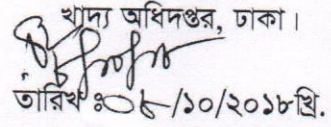 খাদ্য অধিদপ্তর, ঢাকা।
তারিখ ঃ ০৮/১০/২০১৮ খ্রি.